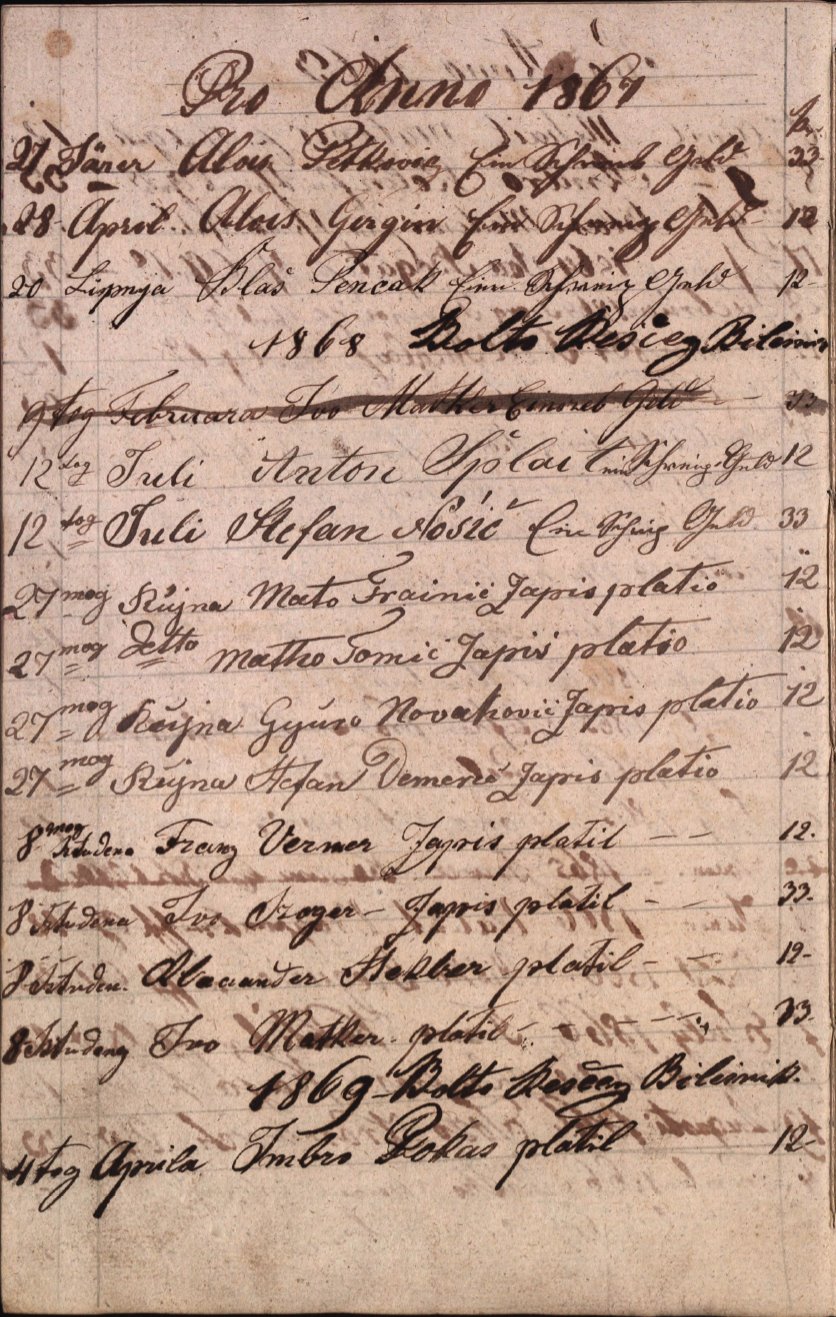 Pro Anno 1867
kr.
27 Järer Alois Petkovig Ein Schreib Geld 33
28 April Alois Gergin Ein Schreig Geld 12
20 Lipnya Blaš Pencak Ein Schreig Geld 12
1868 Bolto Resičeg Bilixnik
9 tog Februara Ivo Matker Einsreb Geld 33
12 tog Juli Anton Šplait ein Schreig Geld 12
12 tog Juli Stefan Nosić Ein Schrig Geld 33
27 mog Rujna Mato Frainić Zapis platio 12
27 mog Detto Matho Tomić Zapis platio 12
27 mog Rujna Gyuro Novaković Zapis platio 12
27 mog Rujna Stefan Demerić Zapis platio 12
8 mog Studena Franz Vermer Zapis platil 12.
8 Studena Ivo Kroger Zapis platil 33.
8 Studen. Alexander Stekher platil 12
8 Studeng Ivo Matker platil 33
1869 Bolto Resičeg Bilixnik.
4 tog Aprila Imbro Rokas platil 12